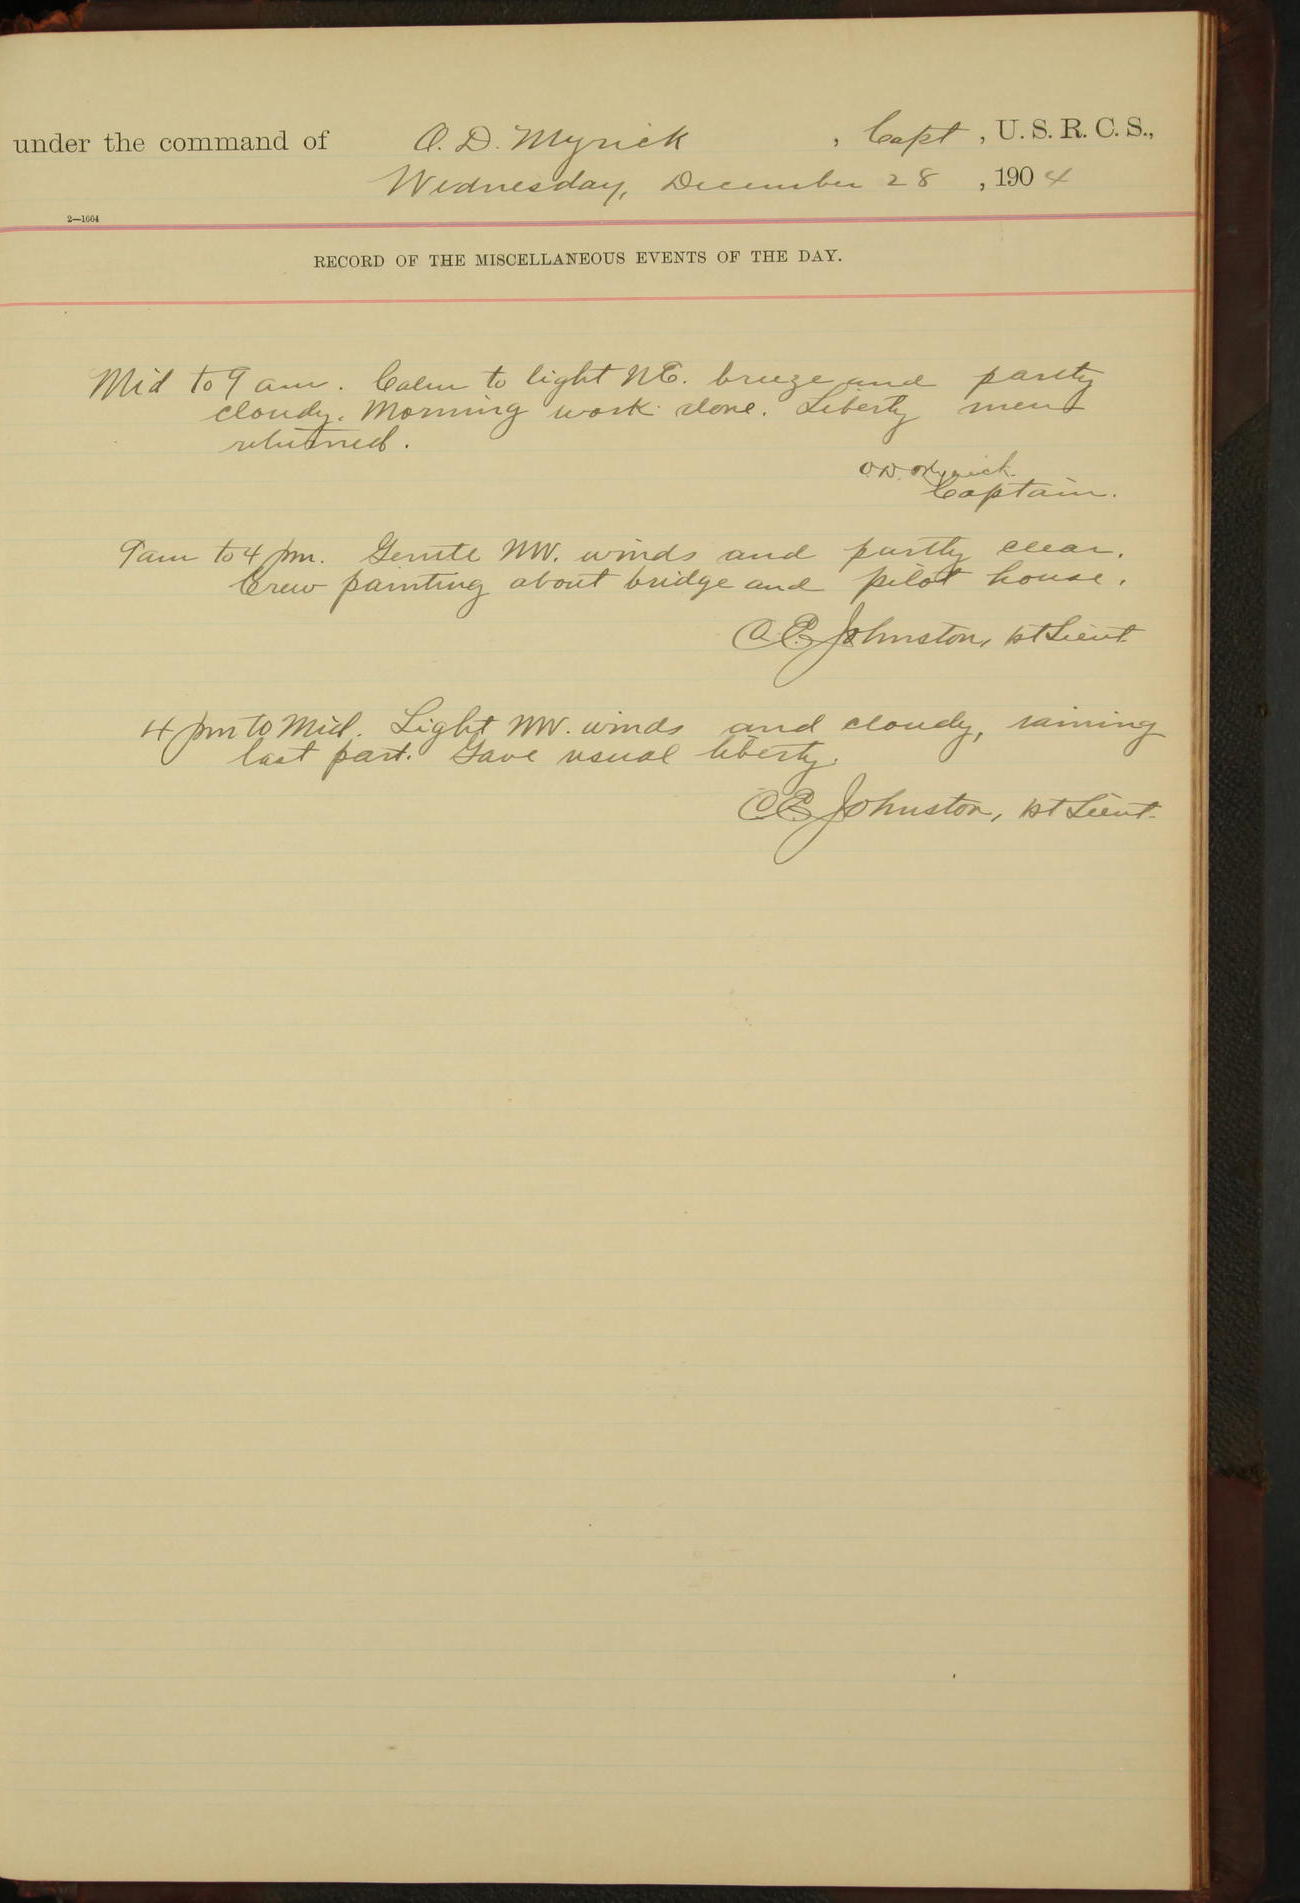 under the command of O. D. Myrick, Capt, U. S. R. C. S.,
Wednesday, December 28, 1904
2—1664
RECORD OF THE MISCELLANEOUS EVENTS OF THE DAY.
Mid to 9 am. Calm to light NE. breeze and partly
cloudy. Morning work done. Liberty men
returned.
O. D. Myrick.
Captain.
9 am to 4 pm. Gentle NW. winds and partly clear.
Crew painting about bridge and pilot house.
C. E. Johnston, 1st Lieut.
4 pm to Mid. Light NW. winds and cloudy, raining
last part. Gave usual liberty.
C E Johnston, 1st Lieut.